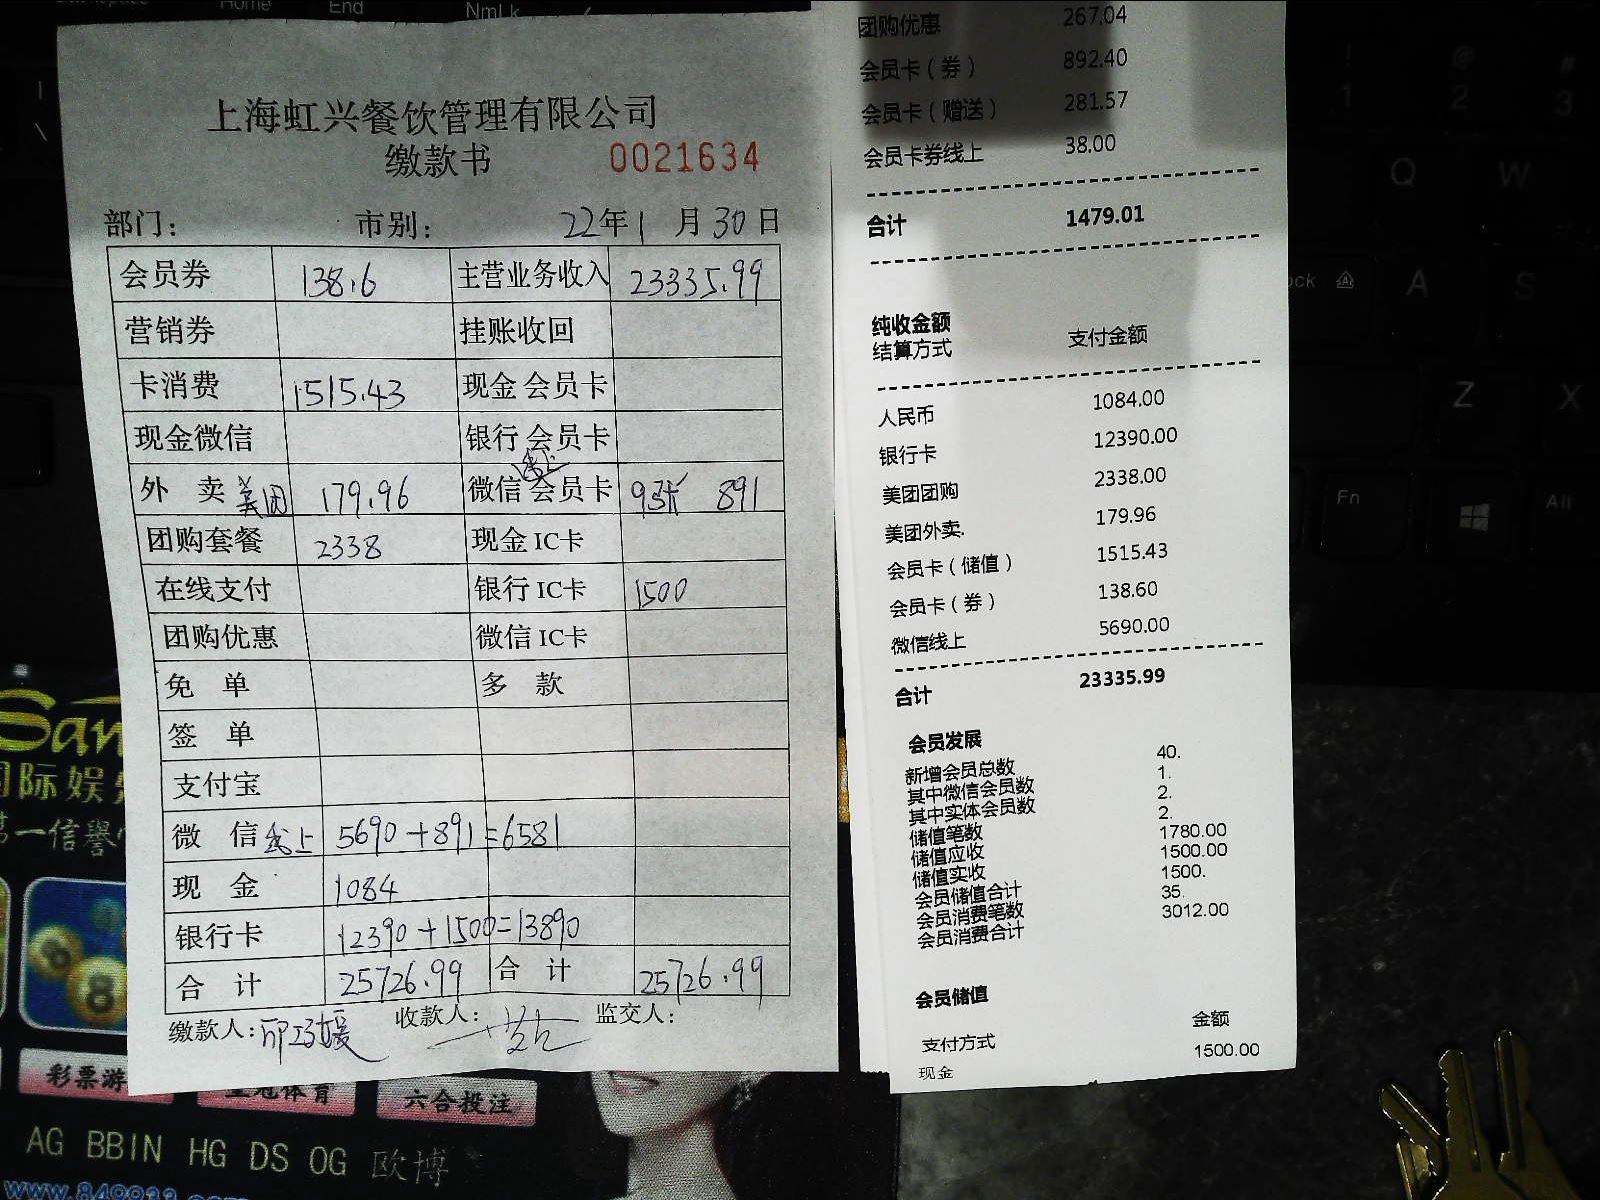 Home
End
NmLk
上海虹兴餐饮管理有限公司
缴款书 0021634
部门： 市别： 22年1月30日
会员券 138.6 主营业务收入 23335.99
营销券 挂账收回
卡消费 1515.43 现金 会员卡
现金微信 银行 会员卡
外 卖 美团 179.96 微信 线上 会员卡 9张 891
团购套餐 2338 现金 IC卡
在线支付 银行 IC卡 1500
团购优惠 微信 IC卡
免 单 多 款
签 单
支付宝
微 信 线上 5690+891=6581
现 金 1084
银行卡 12390+1500=13890
合 计 25726.99 合 计 25726.99
缴款人： 收款人： 监交人：
团购优惠 267.04
会员卡（券） 892.40
会员卡（赠送） 281.57
会员卡券线上 38.00
合计 1479.01
纯收金额
结算方式 支付金额
人民币 1084.00
银行卡 12390.00
美团团购 2338.00
美团外卖. 179.96
会员卡（储值） 1515.43
会员卡（券） 138.60
微信线上 5690.00
合计 23335.99
会员发展
新增会员总数 40.
其中微信会员数 1.
其中实体会员数 2.
储值笔数 2.
储值应收 1780.00
储值实收 1500.00
会员储值合计 1500.
会员消费笔数 35.
会员消费合计 3012.00
会员储值
支付方式 金额
现金 1500.00
! @ #
1 2 3
Q W
ock A S
Z X
Fn Alt
San
国际娱
第一信誉
彩票游
皇冠体育
六合投注
AG BBIN HG DS OG 欧博